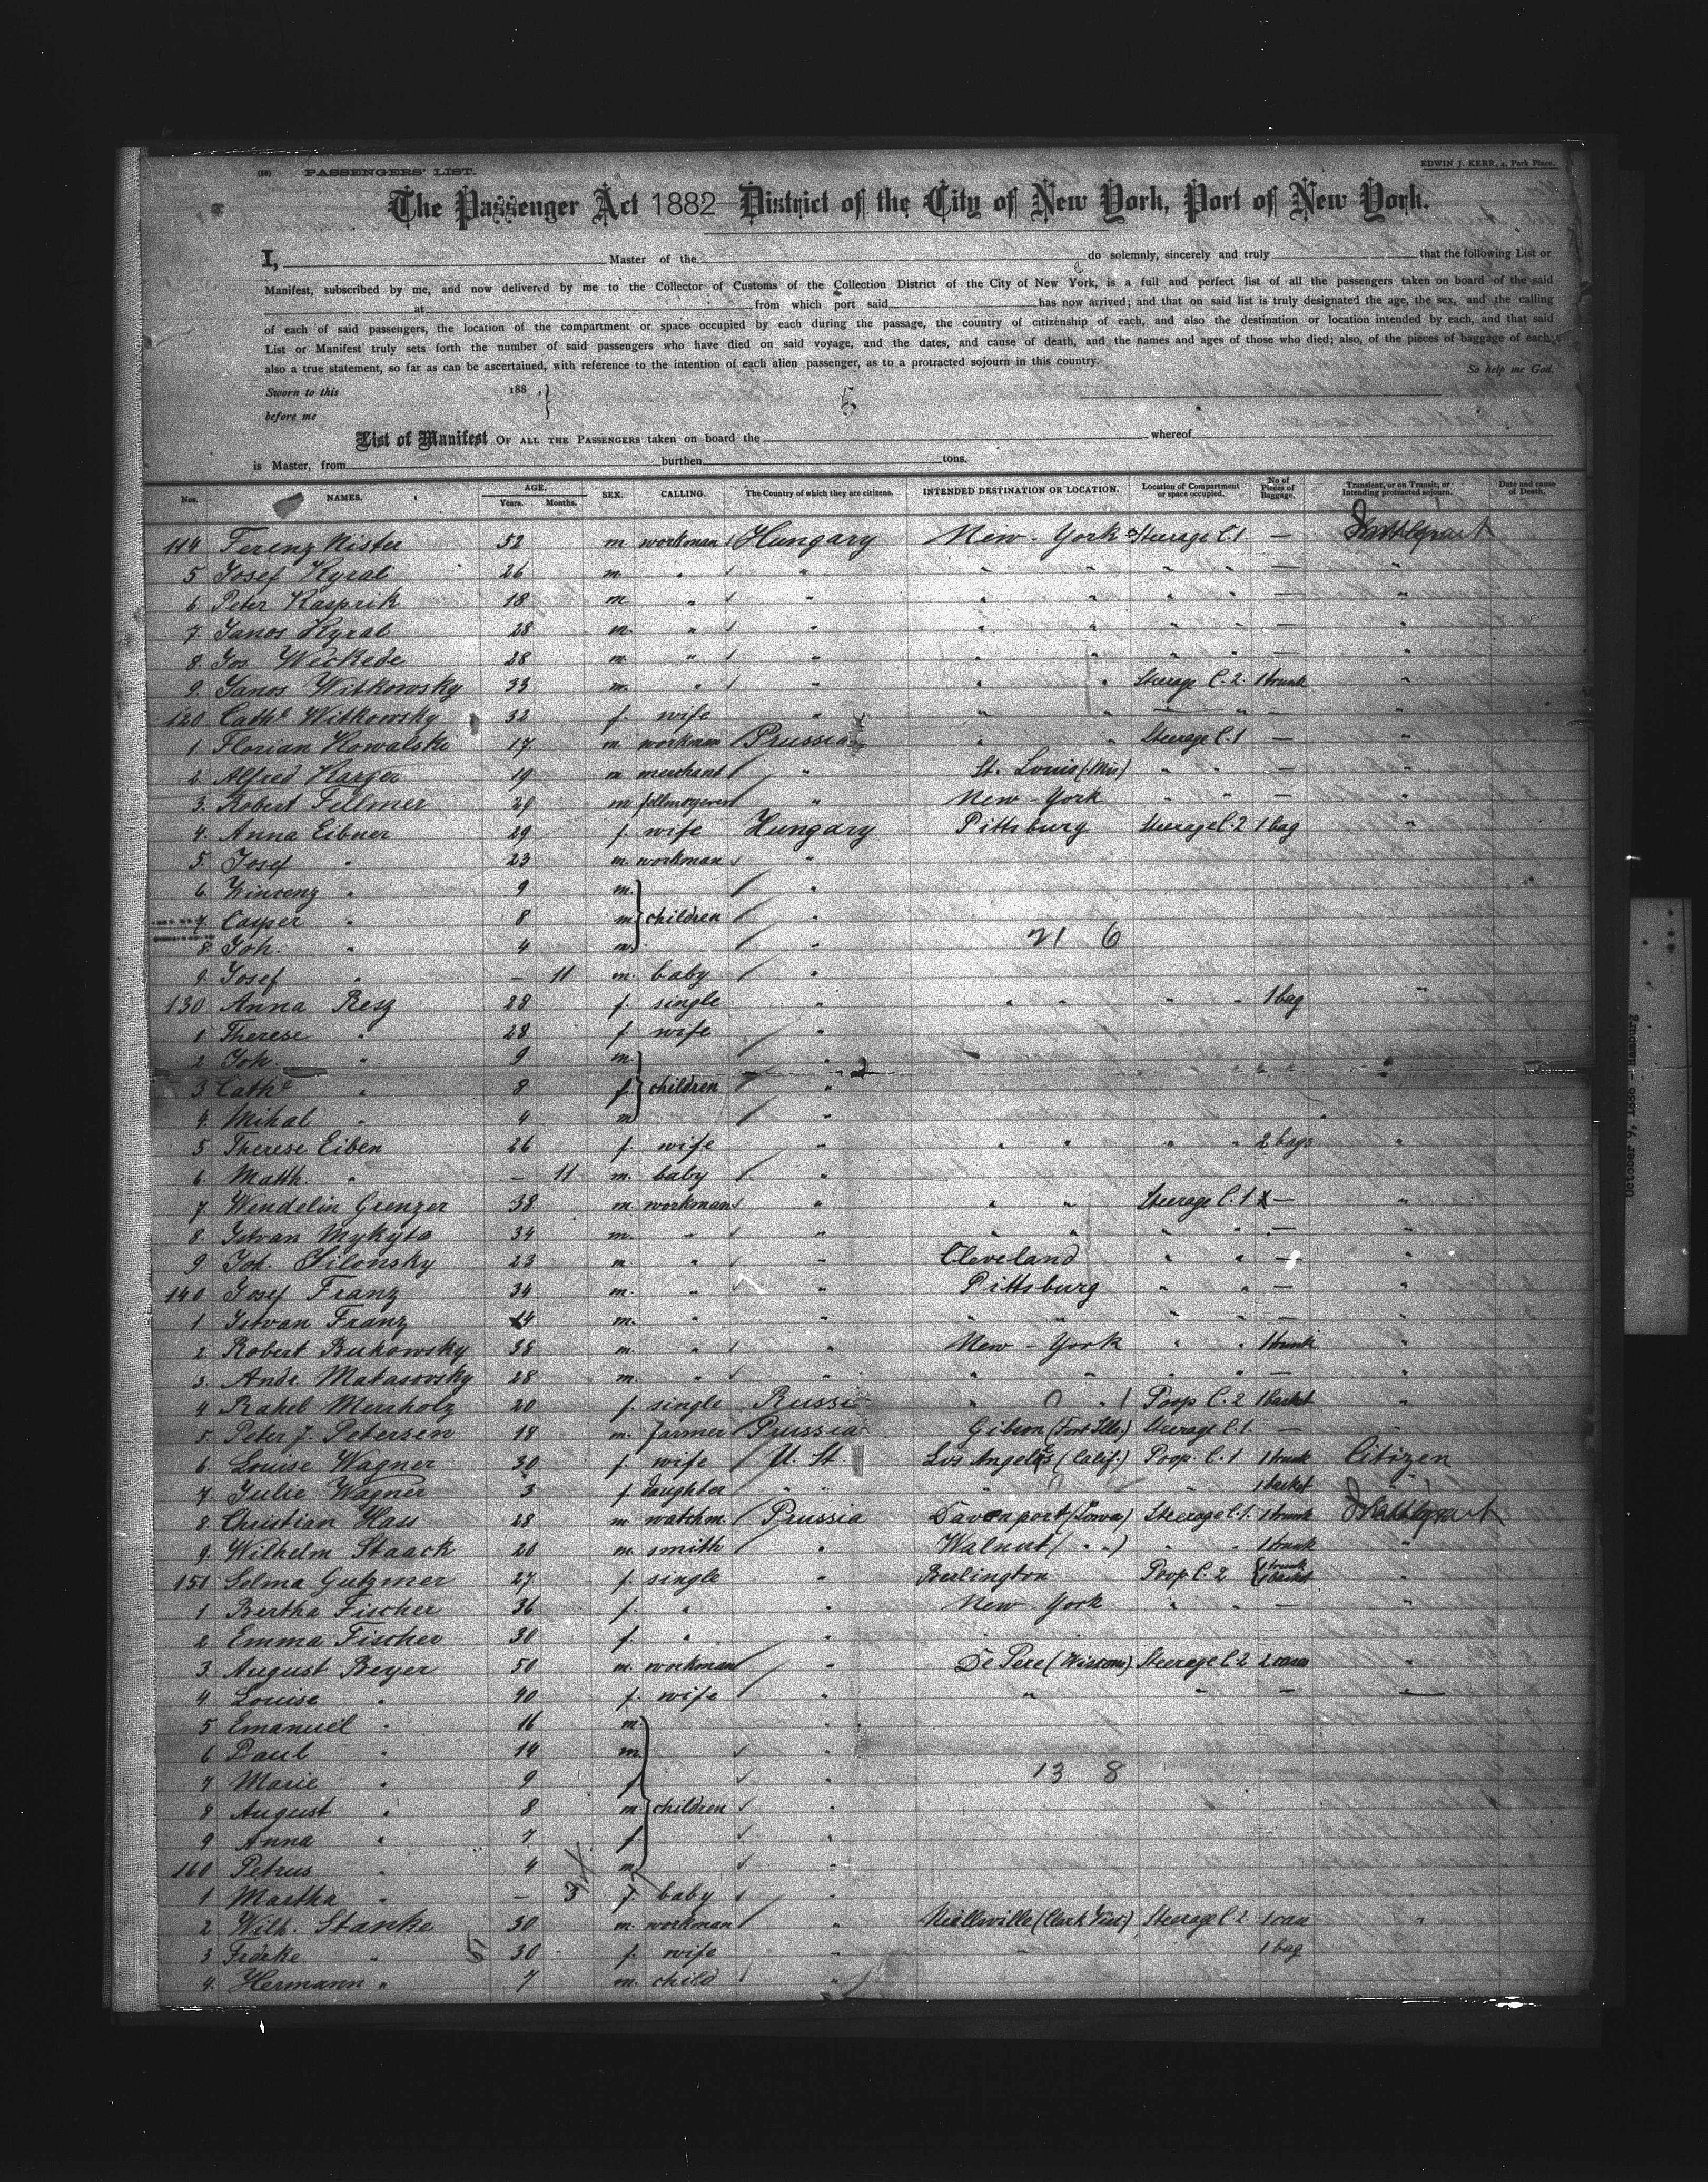 (10) PASSENGERS' LIST. EDWIN J. KERR, 4, Park Place.
The Passenger Act 1882 District of the City of New York, Port of New York.
I, Master of the do solemnly, sincerely and truly that the following List or
Manifest, subscribed by me, and now delivered by me to the Collector of Customs of the Collection District of the City of New York, is a full and perfect list of all the passengers taken on board of the said
at from which port said has now arrived; and that on said list is truly designated the age, the sex, and the calling
of each of said passengers, the location of the compartment or space occupied by each during the passage, the country of citizenship of each, and also the destination or location intended by each, and that said
List or Manifest truly sets forth the number of said passengers who have died on said voyage, and the dates, and cause of death, and the names and ages of those who died; also, of the pieces of baggage of each;
also a true statement, so far as can be ascertained, with reference to the intention of each alien passenger, as to a protracted sojourn in this country. So help me God.
Sworn to this 188 .
before me
List of Manifest OF ALL THE PASSENGERS taken on board the whereof
is Master, from burthen tons.
Nos. NAMES. AGE. Years. Months. SEX. CALLING. The Country of which they are citizens. INTENDED DESTINATION OR LOCATION. Location of Compartment or space occupied. No of Pieces of Baggage. Transient, or on Transit, or Intending protracted sojourn. Date and cause of Death.
114 Ferenz 52 m workman Hungary New-York Steerage C.1 —
5 Josef Kyral 26 m. " " " " " " — "
6 Peter Kasprik 18 m " " " " " " — "
7. Janos Kyral 28 m. " " " " " " — "
8. Jos. Weckede 28 m. " " " " " " — "
9. Janos Witkowsky 33 m. " " " " Steerage C.2. 1 trunk "
120 Cathe Witkowsky 32 f. wife " " " " — "
1. Florian Kowalski 17 m. workman Prussia " " Steerage C.1 — "
2. Alfred Karger 19 m merchant " St. Louis (Mis) " " — "
3. Robert Fellmer 29 m " New-York " " — "
4. Anna Eibner 29 f. wife Hungary Pittsburg Steerage C.2 1 bag "
5. Josef " 23 m. workman "
6. Winzenz " 9 m. "
7. Casper " 8 m children "
8. Joh. " 4 m. " 21 6
9. Josef " — 11 m. baby "
130 Anna Resz 28 f. single " " " " " 1 bag "
1 Therese " 28 f. wife "
2 Joh. " 9 m. "
3 Cathe " 8 f. children "
4. Mihal " 4 m "
5 Therese Eiben 26 f. wife " " " " " 2 bags "
6. Matth. " — 11 m. baby "
7. Wendelin Grenzer 38 m workman " " " Steerage C.1 — "
8. Istvan Mykyta 34 m. " " " " " " — "
9 Joh. Silonsky 23 m. " " Cleveland " " — "
140 Josef Franz 34 m. " " Pittsburg " " — "
1. Istvan Franz 14 m. " " " " " " — "
2. Robert Bukowsky 38 m. " " New-York " " 1 trunk "
3. Andr. Makasovsky 28 m. " " " " " " — "
4 Rahel Merrholz 20 f. single Russia " " Poop C.2 1 basket "
5. Peter J. Petersen 18 m. farmer Prussia Gibson Steerage C.1. — "
6. Louise Wagner 30 f. wife U. St. Los Angeles (Calif.) Poop. C.1 1 trunk Citizen
7. Julie Wagner 3 f. daughter " " " " 1 basket "
8. Christian Hass 28 m watchm. Prussia Davenport (Iowa) Steerage C.1. 1 trunk
9. Wilhelm Staack 20 m. smith " Walnut ( " " ) " " 1 trunk "
151 Selma Gutzmer 27 f. single " Burlington Poop C.2 1 trunk 1 basket "
1 Bertha Fischer 36 f. " " New York " " — "
2 Emma Fischer 30 f. " " " "
3. August Beyer 50 m. workman " De Pere (Wiscons) Steerage C.2 2 cases "
4. Louise " 40 f. wife " " " — "
5 Emanuel " 16 m. "
6 Paul " 14 m "
7 Marie " 9 f " 13 8
8 August " 8 m. children "
9 Anna " 7 f. "
160 Petrus " 4 m "
1 Martha " — 3 f. baby "
2 Wilh. Stanke 30 m. workman " Steerage C.2 1 case "
3 " 5 30 f. wife " " 1 bag
4. Hermann " 7 m. child "
October 9, 1886 - Hamburg